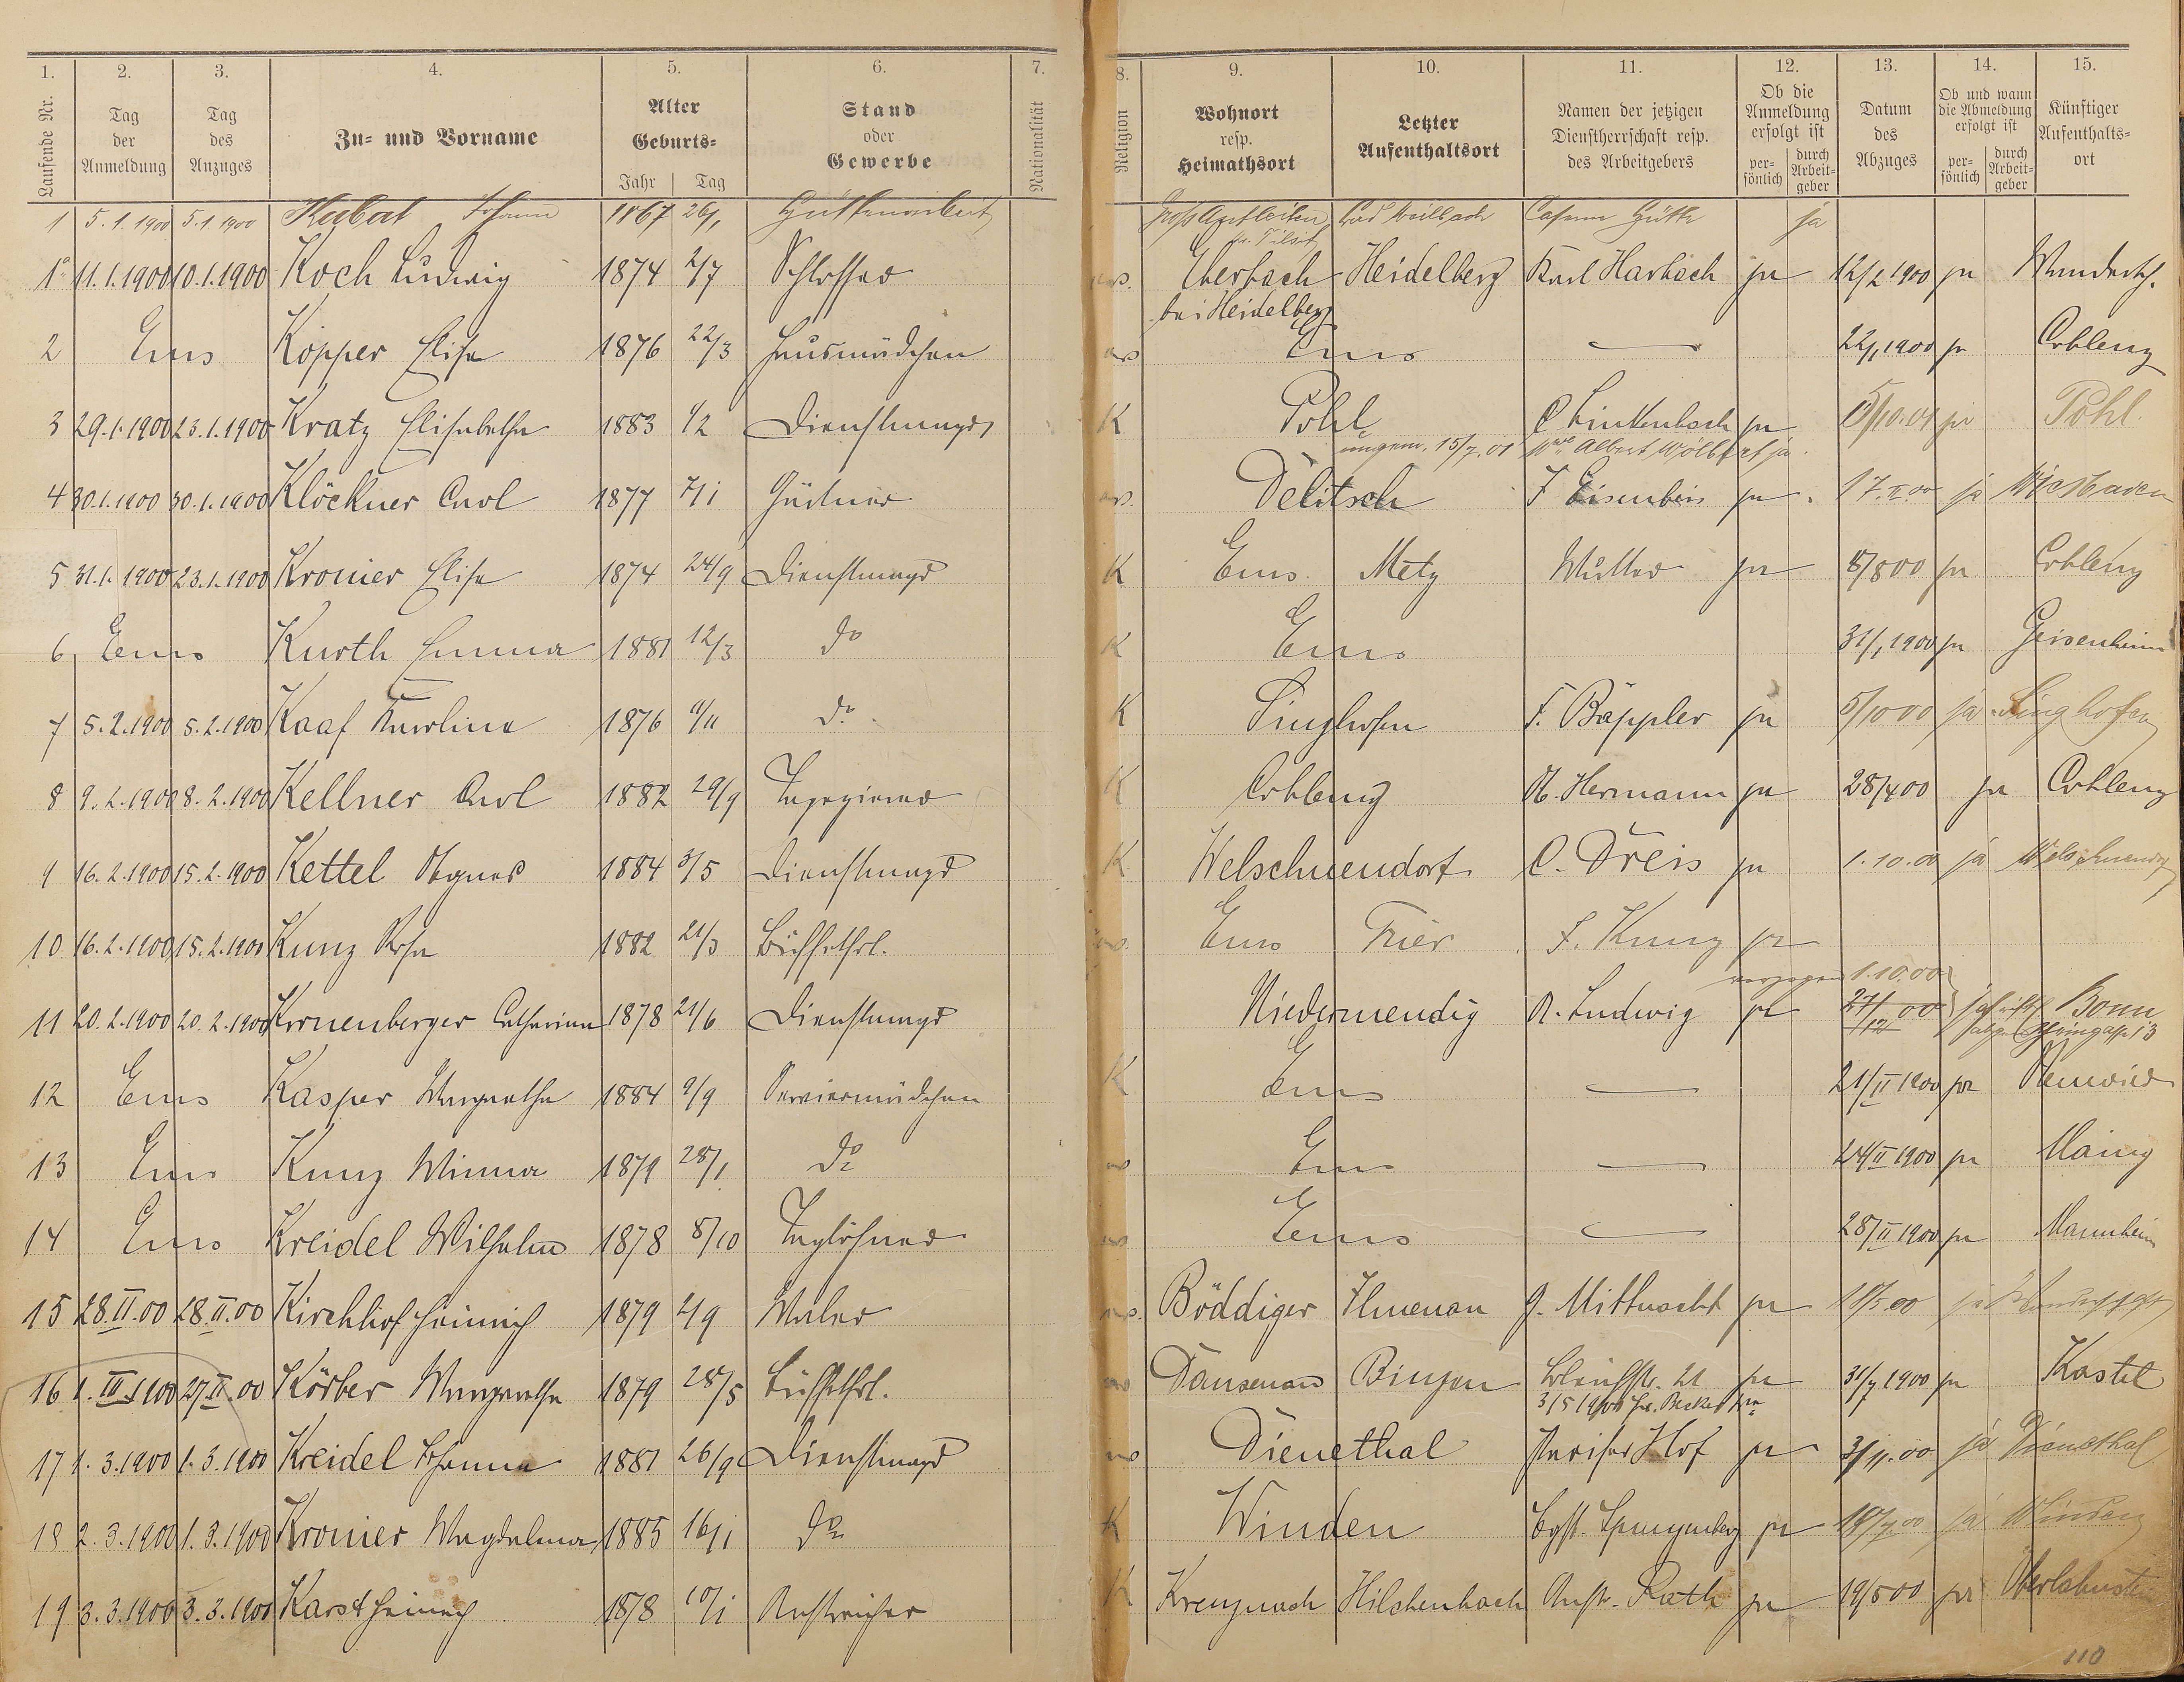 1. 2. 3. 4. 5. 6. 7. 8. 9. 10. 11. 12. 13. 14. 15.
Laufende Nr. Tag der Anmeldung Tag des Anzuges Zu- und Vorname Alter Geburts- Jahr Tag Stand oder Gewerbe Nationalität Religion Wohnort resp. Heimathsort Letzter Aufenthaltsort Namen der jetzigen Dienstherrschaft resp. des Arbeitgebers Ob die Anmeldung erfolgt ist persönlich durch Arbeitgeber Datum des Abzuges Ob und wann die Abmeldung erfolgt ist persönlich durch Arbeitgeber Künftiger Aufenthaltsort
1 5.1.1900 5.1.1900 Kubat Johann 1867 26/1 Hüttenarbeit. Groß Bad Weilbach Hütte ja
Kr. Tilsit
1a 11.1.1900 10.1.1900 Koch Ludwig 1874 2/7 Schlosser ev. Eberbach Heidelberg Karl Harbach ja 12/2 1900 ja Wandersch.
bei Heidelberg
2 Ems Köpper Elise 1876 22/3 Hausmädchen ev Ems — 22/1 1900 ja Coblenz
3 29.1.1900 23.1.1900 Kratz Elisabetha 1883 1/2 Dienstmagd K Pohl C Linkenbach ja 5/10.01 ja Pohl.
umgem. 15/7.01 Wwe Albert Wölbert ja.
4 30.1.1900 30.1.1900 Klöckner Carl 1877 7/1 Gärtner ev. Delitsch F Eisenbeis ja 17.II.00 ja Wiesbaden
5 31.1.1900 23.1.1900 Kronier Elise 1874 24/9 Dienstmagd K Ems Metz Mutter ja 8/8 00 ja Coblenz
6 Ems Kurth Emma 1881 12/3 do K Ems 31/1 1900 ja Geisenheim
7 5.2.1900 5.2.1900 Kaaf Karoline 1876 11/11 do K Singhofen F. Bäppler ja 5/10 00 ja Singhofen
8 9.2.1900 8.2.1900 Kellner Carl 1882 29/9 Tapezierer K Coblenz A. Hermann ja 28/4 00 ja Coblenz
9 16.2.1900 15.2.1900 Kettel Agnes 1884 3/5 Dienstmagd K Welschneudorf C. Dreis ja 1.10.00 ja Welschneudorf
10 16.2.1900 15.2.1900 Kunz Rosa 1882 21/3 Büffetfrl. ev. Ems Trier F. Kunz ja
verzogen 1.10.00
11 20.2.1900 20.2.1900 Kronenberger Catharina 1878 21/6 Dienstmagd Niedermendig A. Ludwig ja 27/12 00 ja Bonn
12 Ems Kasper Margaretha 1884 9/9 Serviermädchen K Ems — 21/II 1900 ja Neuwied
13 Ems Kunz Minna 1879 28/1 do ev Ems — 24/II 1900 ja Mainz
14 Ems Kreidel Wilhelm 1878 8/10 Taglöhner ev Ems — 28/II 1900 ja Mannheim
15 28.II.00 28.II.00 Kirchhof Heinrich 1879 2/9 Maler ev. Böddiger Ilmenau J. Mittnacht ja ja
16 1.III.1900 27.II.00 Körber Margaretha 1879 28/5 Büffetfrl. ev Dausenau Bingen Bleichstr. 21 ja 31/7 1900 ja Kastel
3/5 1900 Becker
17 1.3.1900 1.3.1900 Kreidel Johanna 1881 26/9 Dienstmagd ev Dienethal Pariser Hof ja 3/11.00 ja Dienethal
18 2.3.1900 1.3.1900 Kronier Magdalena 1885 16/1 do K Winden Spangenberg ja ja Winden
19 3.3.1900 3.3.1900 Karst Heinrich 1878 10/1 Anstreicher K Kreuznach Hilchenbach Anstr. Rath ja 19/5 00 ja Oberlahnstein
110